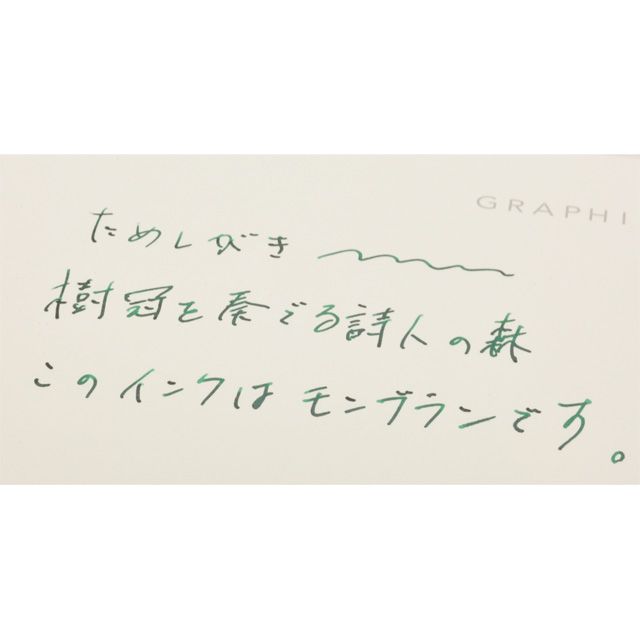 GRAPHI
ためしがき
樹冠を奏でる詩人の森
このインクはモンブランです。